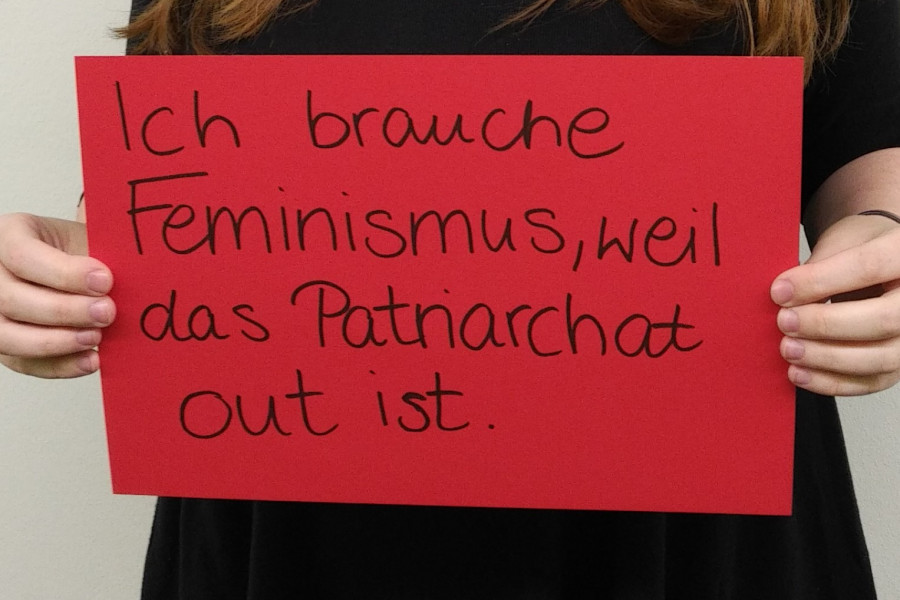 Ich brauche
Feminismus, weil
das Patriarchat
out ist.